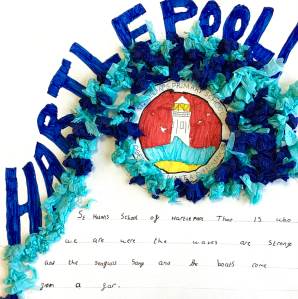 HARTLEPOOL
PRIMARY
St Helens School of Hartlepool That is who
we are were the waves are strong
and the seagulls Song and the boats come
from a far.